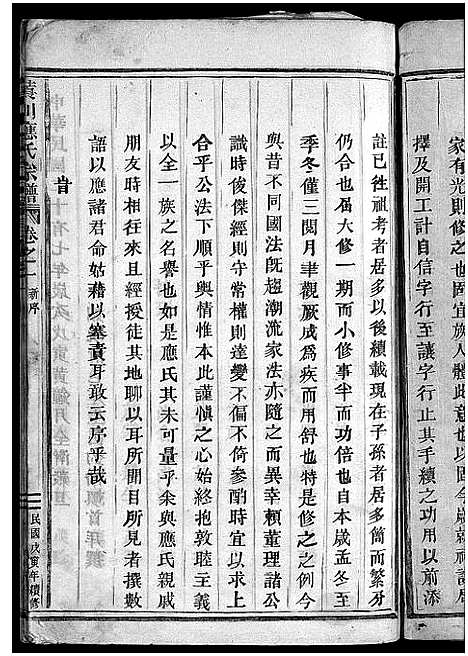 家有光則修之也固宜族人體此意也以今歲就祠諏居
擇及開工計自信字行至讓字行止其手續之功用以前添
註已徃祖考者居多以後續載現在子孫者居多簡而繁分
仍合也屆大修一期而小修事半而功倍也自本歲孟冬至
季冬僅三閱月聿觀厥成爲疾而用舒也特是修之之例今
與昔不同國法旣趨潮流家法亦隨之而異幸賴董理諸公
識時俊傑經則守常權則達變不偏不倚參酌時宜以求上
合乎公法下順乎輿情惟本此謹愼之心始終抱敦睦主義
以全一族之名譽也如是應氏其未可量乎余與應氏親戚
朋友時相往來且經授徒其地聊以耳所聞目所見者撰數
語以應諸君命姑藉以塞責耳敢云序乎哉
旹
川應氏宗譜
卷之一
新序
民國戊寅年續修